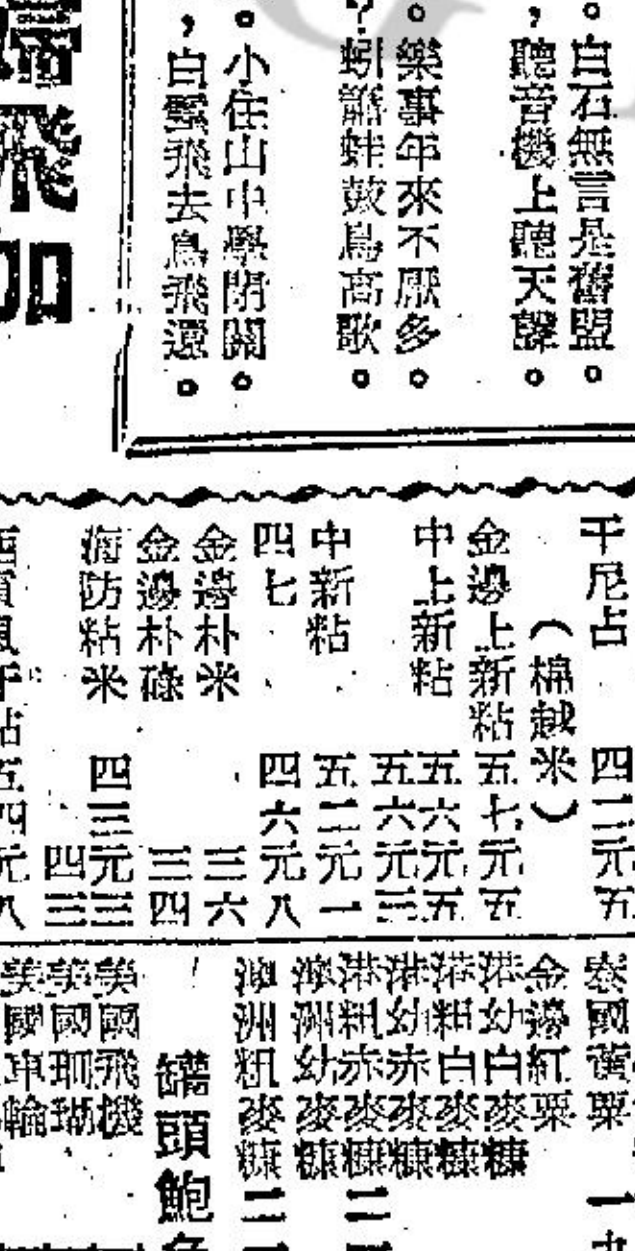 。白石無言是舊盟。
，聽音機上聽天譯。
。樂事年來不厭多。
？蚓謳蛙鼓鳥高歌。
。小住山中學閉關。
，白雲飛去鳥飛還。
飛加
干尼占 四二元五
（棉越米）
金邊上新粘 五七元五
中上新粘 五六元五
五六元三
中新粘 五二元一
四七 四六元八
金邊朴米 三六
金邊朴碌 三四
海防粘米 四三元三
四三
五四元八
泰國黃粟 一
金邊紅粟
港幼白麥糠
港粗白麥糠
港幼赤麥糠
港粗赤麥糠 二
澳洲幼麥糠
澳洲粗麥糠 二
罐頭鮑
美國飛機
美國珊瑚
美國車輪